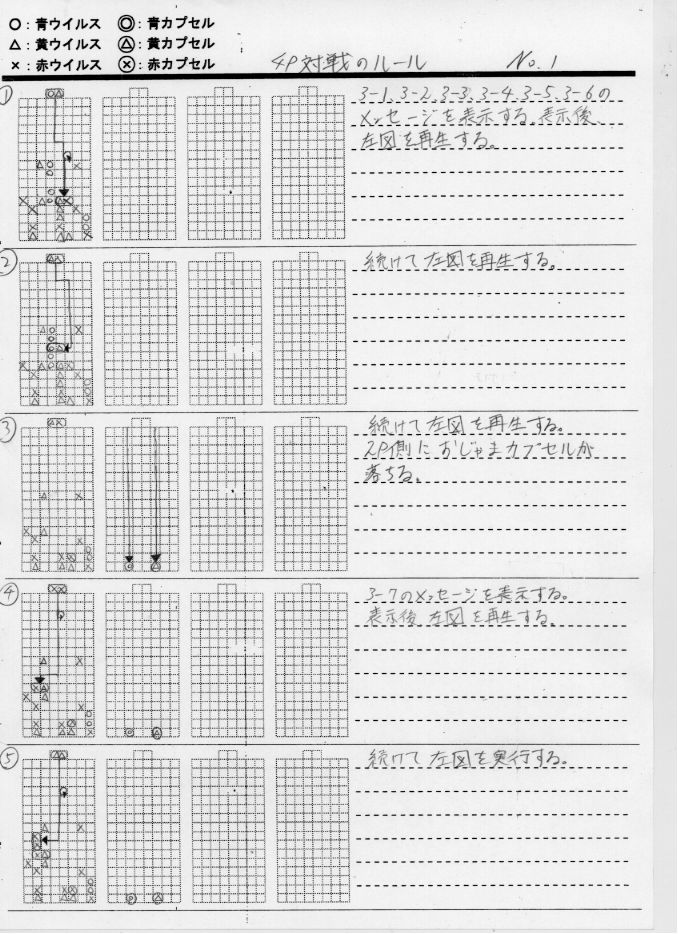 ○：青ウイルス ◎：青カプセル
△：黄ウイルス Ⓐ：黄カプセル
×：赤ウイルス ⓧ：赤カプセル
4P対戦のルール No.1
①
3-1、3-2、3-3、3-4、3-5、3-6の
メッセージを表示する。表示後、
左図を再生する。
②
続けて左図を再生する。
③
続けて左図を再生する。
2P側におじゃまカプセルが
落ちる。
④
3-7のメッセージを表示する。
表示後、左図を再生する。
⑤
続けて左図を実行する。